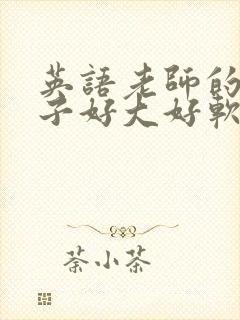 英語老師的
子好大好軟
荼小茶